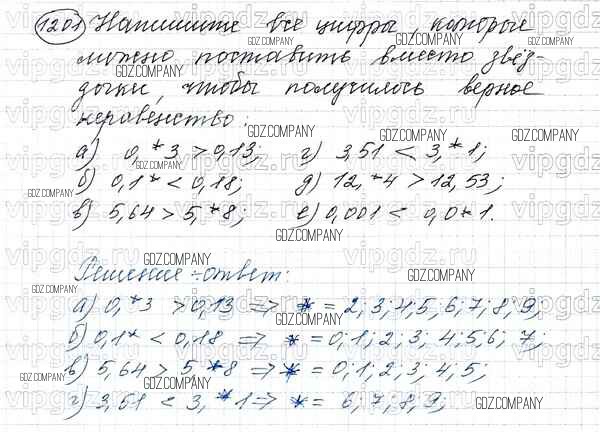 1201 Напишите все цифры которые
можно поставить вместо звёз-
дочки, чтобы получилось верное
неравенство:
а) 0,*3 > 0,13; г) 3,51 < 3,*1;
б) 0,1* < 0,18; д) 12,*4 > 12,53;
в) 5,64 > 5,*8; е) 0,001 < 0,0*1.
Решение-ответ:
а) 0,*3 > 0,13 => * = 2; 3; 4; 5; 6; 7; 8; 9;
б) 0,1* < 0,18 => * = 0; 1; 2; 3; 4; 5; 6; 7;
в) 5,64 > 5,*8 => * = 0; 1; 2; 3; 4; 5;
г) 3,51 < 3,*1 => * = 6; 7; 8; 9;
GDZ.COMPANY
vipgdz.ru